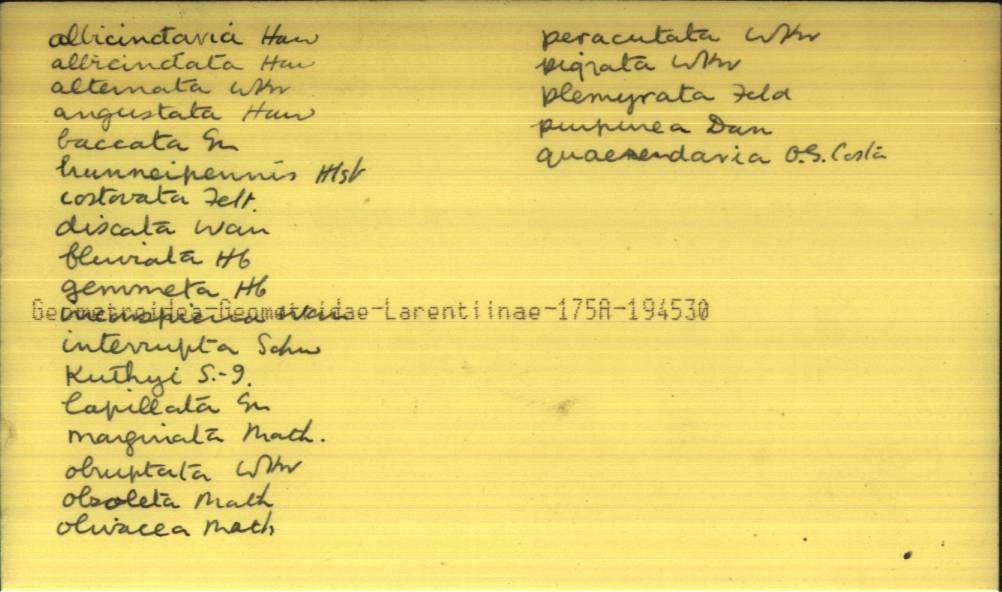 albicinctaria Haw
albicinctata Haw
alternata Wkr
angustata Haw
baccata Gn
brunneipennis Hlst
costovata Feld.
discata Warr
fluviata Hb
gemmata Hb
Geometroidea-Geometridae-Larentiinae-175A-194530
interrupta
Kuthyi
lapillata Gn
marginata Math.
obruptata Wkr
obsoleta Math
olivacea Math
peracutata Wkr
pigrata Wkr
plemyrata Feld
purpurea Dan
quaesendaria O.G. Costa